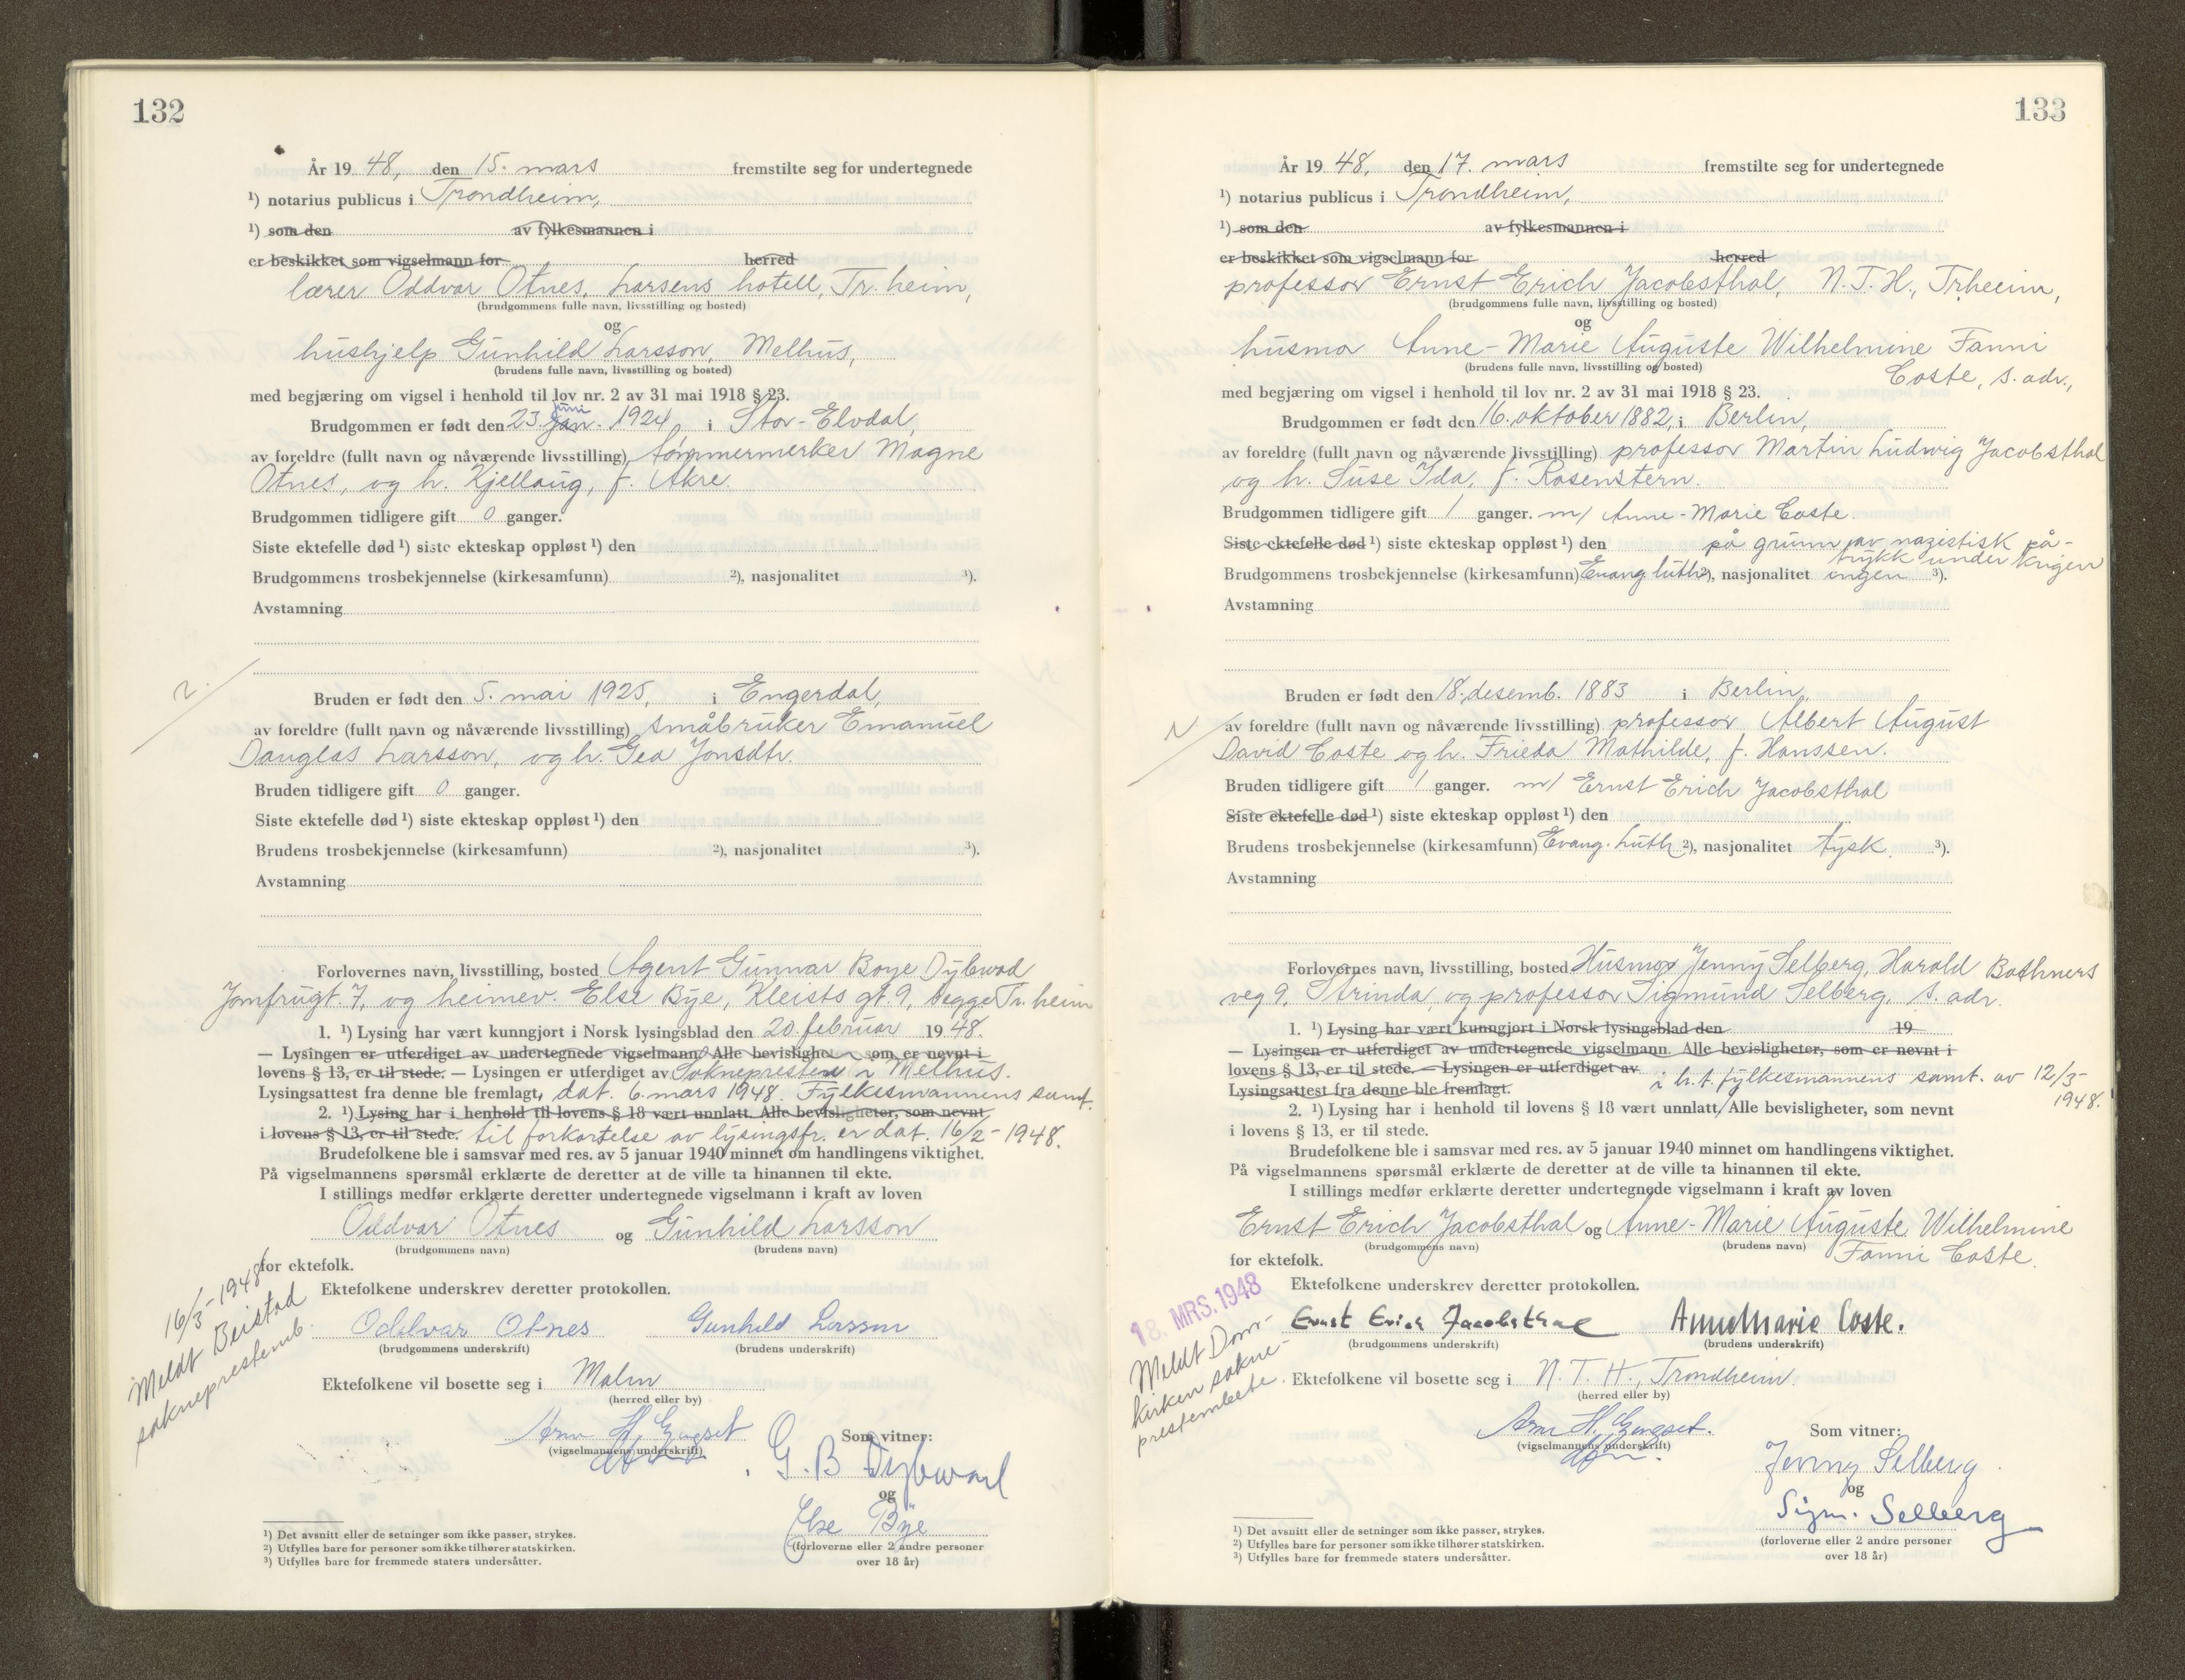 132
År 1948, den 15. mars fremstilte seg for undertegnede
¹) notarius publicus i Trondheim,
¹) som den av fylkesmannen i
er beskikket som vigselmann for herred
lærer Oddvar Otnes, Larsens hotell, Tr.heim,
(brudgommens fulle navn, livsstilling og bosted)
og
hushjelp Gunhild Larsson, Melhus,
(brudens fulle navn, livsstilling og bosted)
med begjæring om vigsel i henhold til lov nr. 2 av 31 mai 1918 § 23.
juni
Brudgommen er født den 23. jan. 1924 i Stor-Elvdal,
av foreldre (fullt navn og nåværende livsstilling) tømmermerker Magne
Otnes, og h. Kjellaug, f. Akre.
Brudgommen tidligere gift 0 ganger.
Siste ektefelle død ¹) siste ekteskap oppløst ¹) den
Brudgommens trosbekjennelse (kirkesamfunn) ²), nasjonalitet ³).
Avstamning
2.
Bruden er født den 5. mai 1925, i Engerdal,
av foreldre (fullt navn og nåværende livsstilling) småbruker Emanuel
Douglas Larsson, og h. Gea Jonsdtr.
Bruden tidligere gift 0 ganger.
Siste ektefelle død ¹) siste ekteskap oppløst ¹) den
Brudens trosbekjennelse (kirkesamfunn) ²), nasjonalitet ³).
Avstamning
Forlovernes navn, livsstilling, bosted Agent Gunnar Boye Dybwad
Jomfrugt. 7, og heimev. Else Bye, Kleists gt. 9, begge Tr.heim
1. ¹) Lysing har vært kunngjort i Norsk lysingsblad den 20. februar 1948.
— Lysingen er utferdiget av undertegnede vigselmann. Alle bevisligheter, som er nevnt i
lovens § 13, er til stede. — Lysingen er utferdiget av Soknepresten i Melhus.
Lysingsattest fra denne ble fremlagt, dat. 6. mars 1948. Fylkesmannens samt.
2. ¹) Lysing har i henhold til lovens § 18 vært unnlatt. Alle bevisligheter, som nevnt
i lovens § 13, er til stede. til forkortelse av lysingsfr. er dat. 16/2-1948.
Brudefolkene ble i samsvar med res. av 5 januar 1940 minnet om handlingens viktighet.
På vigselmannens spørsmål erklærte de deretter at de ville ta hinannen til ekte.
I stillings medfør erklærte deretter undertegnede vigselmann i kraft av loven
Oddvar Otnes og Gunhild Larsson
(brudgommens navn) (brudens navn)
for ektefolk.
Ektefolkene underskrev deretter protokollen.
16/3-1948
Meldt Beistad
sokneprestemb.
Oddvar Otnes Gunhild Larsson
(brudgommens underskrift) (brudens underskrift)
Ektefolkene vil bosette seg i Malm
(herred eller by)
Arne H. Gengset
(vigselmannens underskrift)
Som vitner:
G. B Dybwad
og
Else Bye
(forloverne eller 2 andre personer
over 18 år)
¹) Det avsnitt eller de setninger som ikke passer, strykes.
²) Utfylles bare for personer som ikke tilhører statskirken.
³) Utfylles bare for fremmede staters undersåtter.
133
År 1948, den 17. mars fremstilte seg for undertegnede
¹) notarius publicus i Trondheim,
¹) som den av fylkesmannen i
er beskikket som vigselmann for herred
professor Ernst Erich Jacobsthal, N.T.H., Trheim,
(brudgommens fulle navn, livsstilling og bosted)
og
husmor Anne-Marie Auguste Wilhelmine Fanni
(brudens fulle navn, livsstilling og bosted)
Coste, s. adr.,
med begjæring om vigsel i henhold til lov nr. 2 av 31 mai 1918 § 23.
Brudgommen er født den 16. oktober 1882, i Berlin,
av foreldre (fullt navn og nåværende livsstilling) professor Martin Ludwig Jacobsthal
og h. Suse Ida, f. Rosenstern.
Brudgommen tidligere gift 1 ganger. m/ Anne-Marie Coste.
Siste ektefelle død ¹) siste ekteskap oppløst ¹) den på grunn av nazistisk på-
trykk under krigen
Brudgommens trosbekjennelse (kirkesamfunn) Evang. luth ²), nasjonalitet ingen ³).
Avstamning
Bruden er født den 18. desemb. 1883 i Berlin,
av foreldre (fullt navn og nåværende livsstilling) professor Albert August
David Coste og h. Frieda Mathilde, f. Hanssen.
Bruden tidligere gift 1 ganger. m/ Ernst Erich Jacobsthal
Siste ektefelle død ¹) siste ekteskap oppløst ¹) den
Brudens trosbekjennelse (kirkesamfunn) Evang. luth ²), nasjonalitet tysk ³).
Avstamning
Forlovernes navn, livsstilling, bosted Husmor Jenny Selberg, Harald Bothners
veg 9, Strinda, og professor Sigmund Selberg, s. adr.
1. ¹) Lysing har vært kunngjort i Norsk lysingsblad den 19
— Lysingen er utferdiget av undertegnede vigselmann. Alle bevisligheter, som er nevnt i
lovens § 13, er til stede. — Lysingen er utferdiget av
Lysingsattest fra denne ble fremlagt. i h.t. fylkesmannens samt. av 12/3-
1948.
2. ¹) Lysing har i henhold til lovens § 18 vært unnlatt/ Alle bevisligheter, som nevnt
i lovens § 13, er til stede.
Brudefolkene ble i samsvar med res. av 5 januar 1940 minnet om handlingens viktighet.
På vigselmannens spørsmål erklærte de deretter at de ville ta hinannen til ekte.
I stillings medfør erklærte deretter undertegnede vigselmann i kraft av loven
Ernst Erich Jacobsthal og Anne-Marie Auguste Wilhelmine
(brudgommens navn) (brudens navn) Fanni Coste.
for ektefolk.
Ektefolkene underskrev deretter protokollen.
18. MRS. 1948
Meldt Dom-
kirken sokne-
prestembete.
Ernst Erich Jacobsthal AnneMarie Coste.
(brudgommens underskrift) (brudens underskrift)
Ektefolkene vil bosette seg i N.T.H., Trondheim.
(herred eller by)
Arne H. Gengset.
(vigselmannens underskrift)
Som vitner:
Jenny Selberg
og
Sigm. Selberg
(forloverne eller 2 andre personer
over 18 år)
¹) Det avsnitt eller de setninger som ikke passer, strykes.
²) Utfylles bare for personer som ikke tilhører statskirken.
³) Utfylles bare for fremmede staters undersåtter.